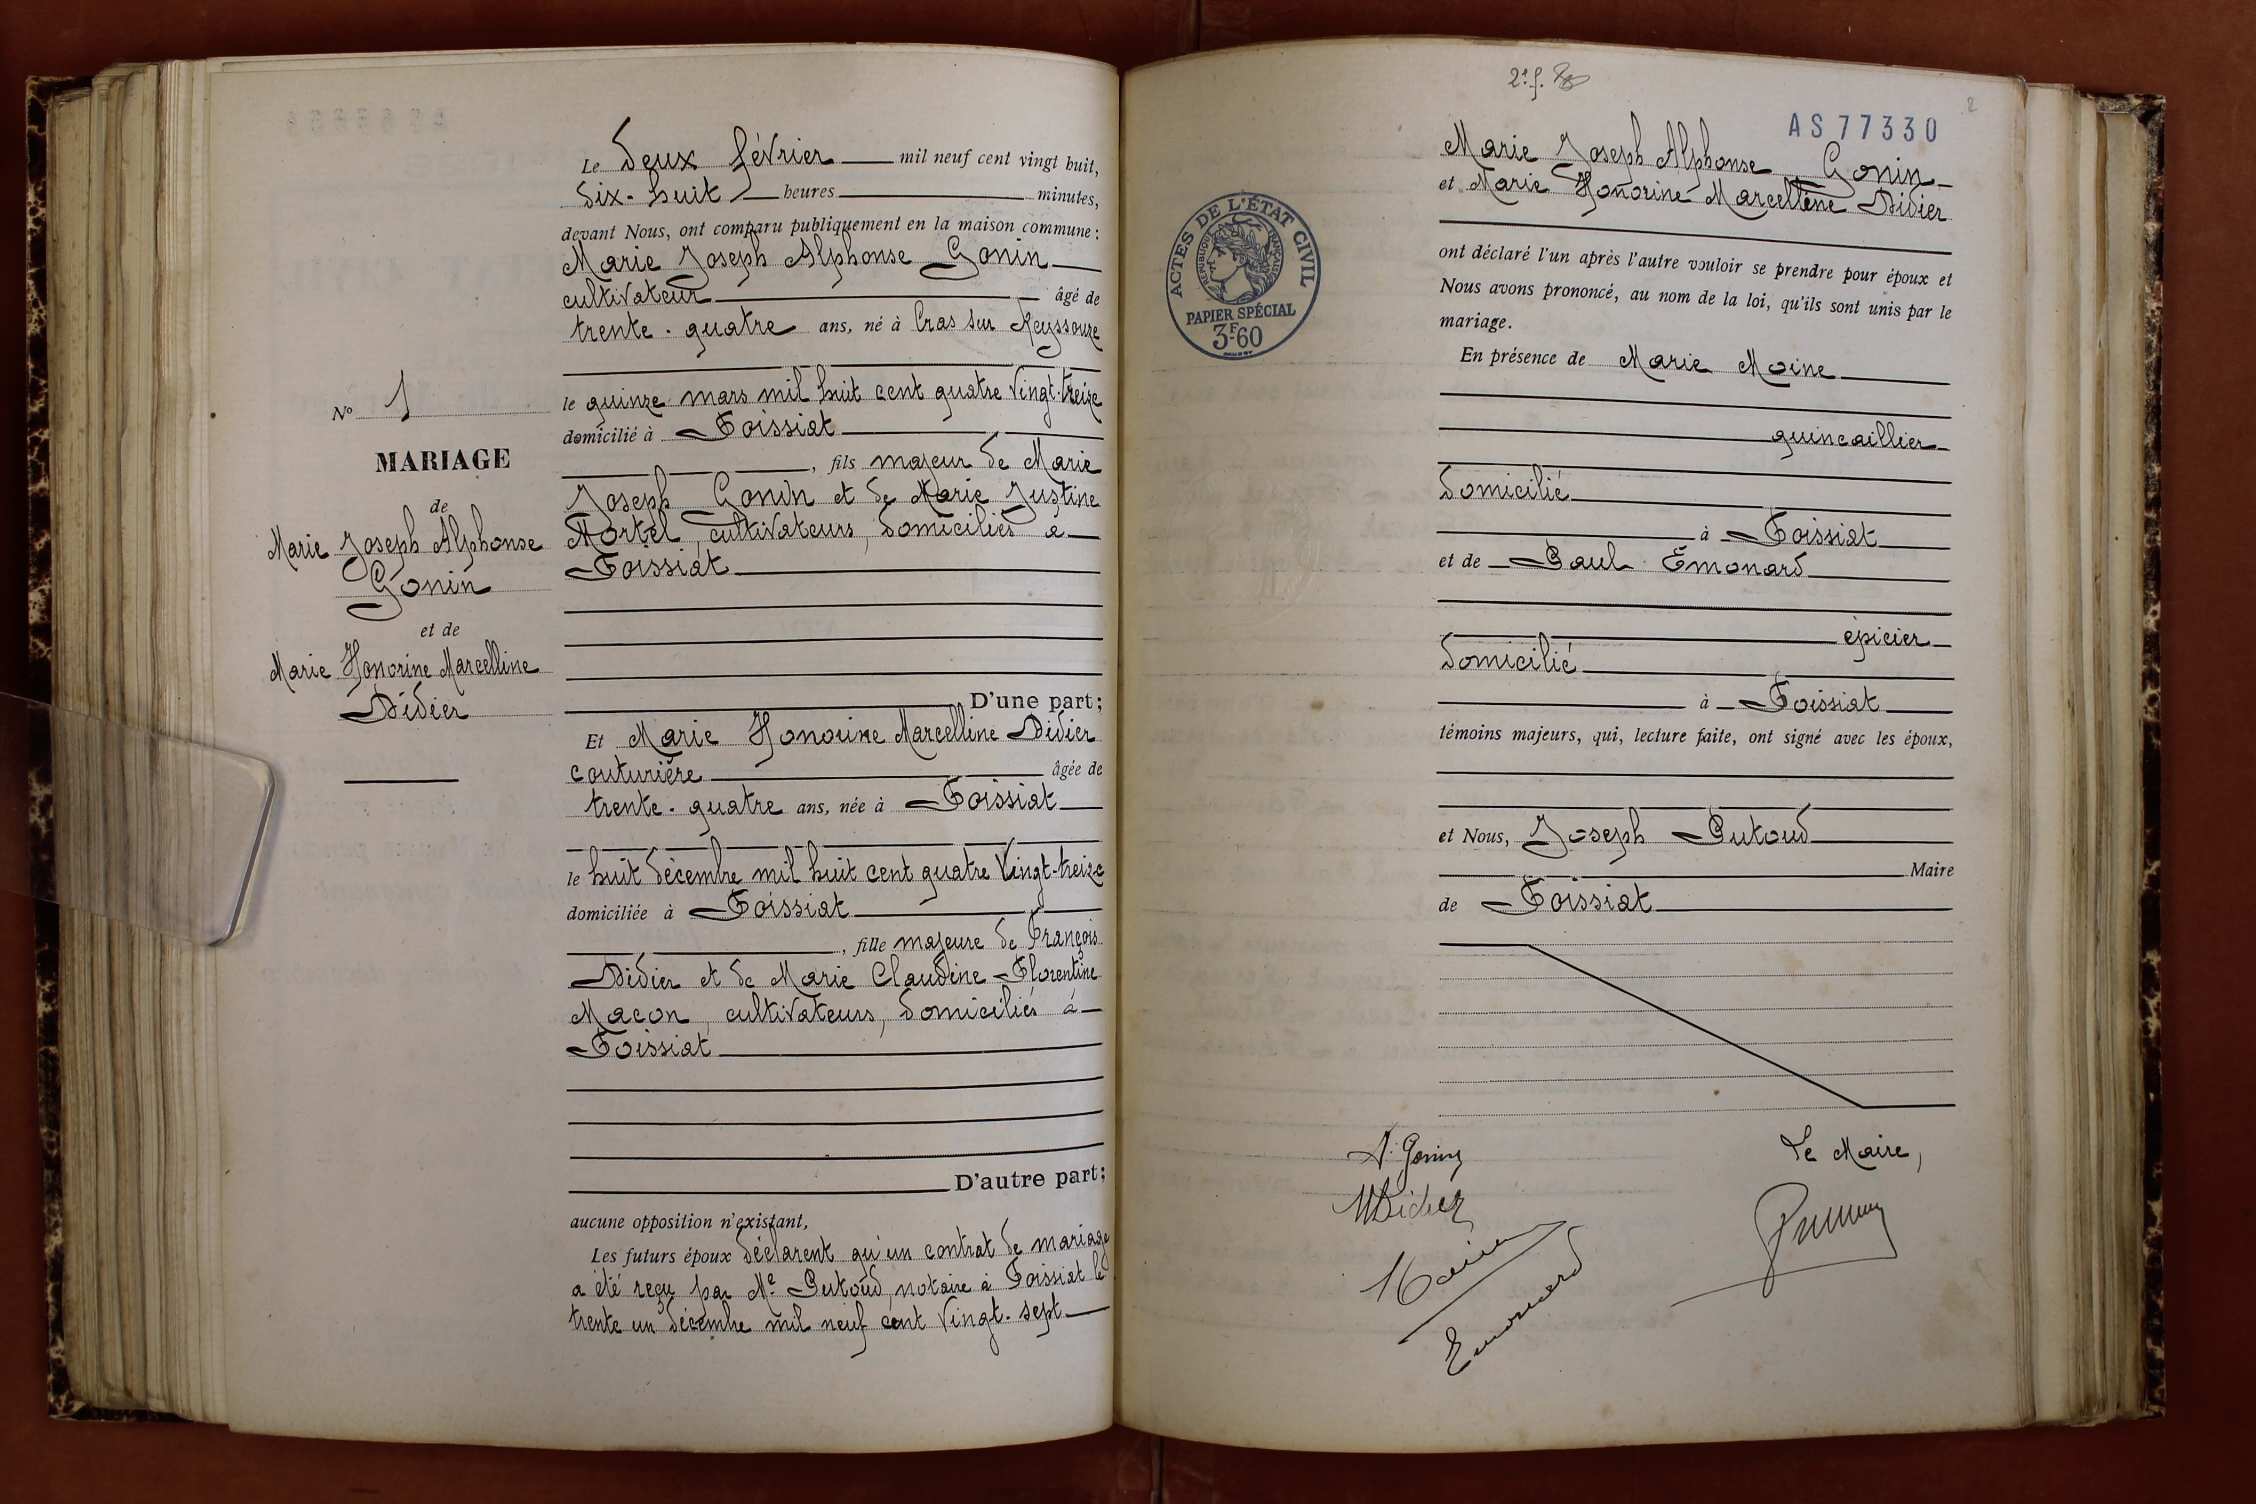 Le deux février mil neuf cent vingt huit,
dix-huit heures minutes,
devant Nous, ont comparu publiquement en la maison commune :
Marie Joseph Alphonse Gonin
cultivateur âgé de
trente-quatre ans, né à Cras sur Reyssouze
le quinze mars mil huit cent quatre vingt-treize
domicilié à Foissiat
, fils majeur de Marie
Joseph Gonin et de Marie Justine
Mortel, cultivateurs, domiciliés à
Foissiat
D'une part;
Et Marie Honorine Marcelline Didier
couturière âgée de
trente-quatre ans, née à Foissiat
le huit décembre mil huit cent quatre vingt-treize
domiciliée à Foissiat
, fille majeure de François
Didier et de Marie Claudine Florentine
Macon, cultivateurs, domiciliés à
Foissiat
D'autre part;
aucune opposition n'existant,
Les futurs époux déclarent qu'un contrat de mariage
a été reçu par Me Putoud, notaire à Foissiat le
trente un décembre mil neuf cent vingt-sept
No 1
MARIAGE
de
Marie Joseph Alphonse
Gonin
et de
Marie Honorine Marcelline
Didier
2e f.
2
AS77330
ACTES DE L'ÉTAT CIVIL
RÉPUBLIQUE FRANÇAISE
PAPIER SPÉCIAL
3F60
Marie Joseph Alphonse Gonin
et Marie Honorine Marcelline Didier
ont déclaré l'un après l'autre vouloir se prendre pour époux et
Nous avons prononcé, au nom de la loi, qu'ils sont unis par le
mariage.
En présence de Marie Moine
quincaillier
domicilié
à Foissiat
et de Paul Emonard
épicier
domicilié
à Foissiat
témoins majeurs, qui, lecture faite, ont signé avec les époux,
et Nous, Joseph Putoud
Maire
de Foissiat
A. Gonin
M Didier
Moine
Emonard
Le Maire,